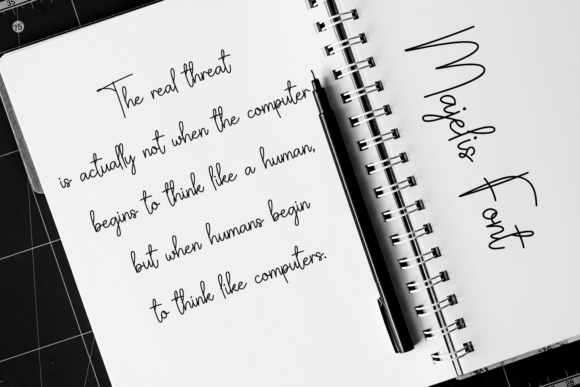 75
The real threat
is actually not when the computer
begins to think like a human,
but when humans begin
to think like computers.
Majelis
Font